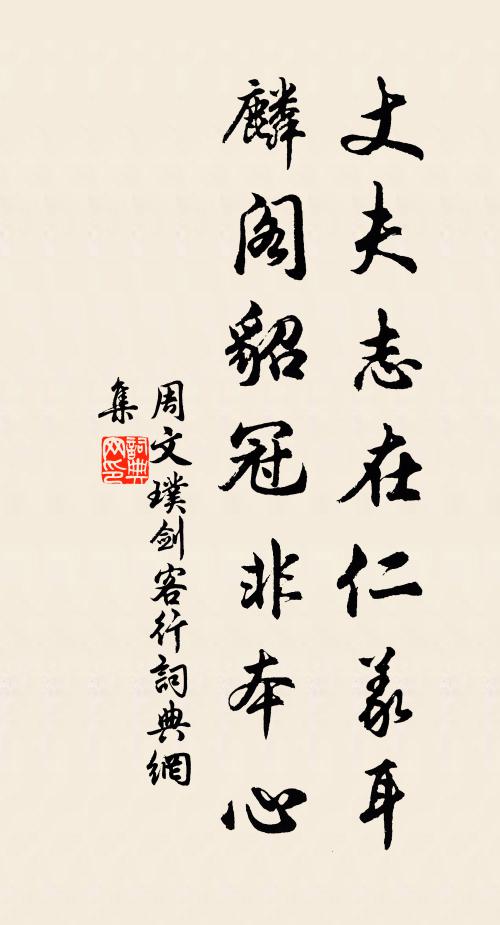 丈夫志在仁義耳
麟阁貂冠非本心
周文璞劍客行詞典網
集
詞典
网印